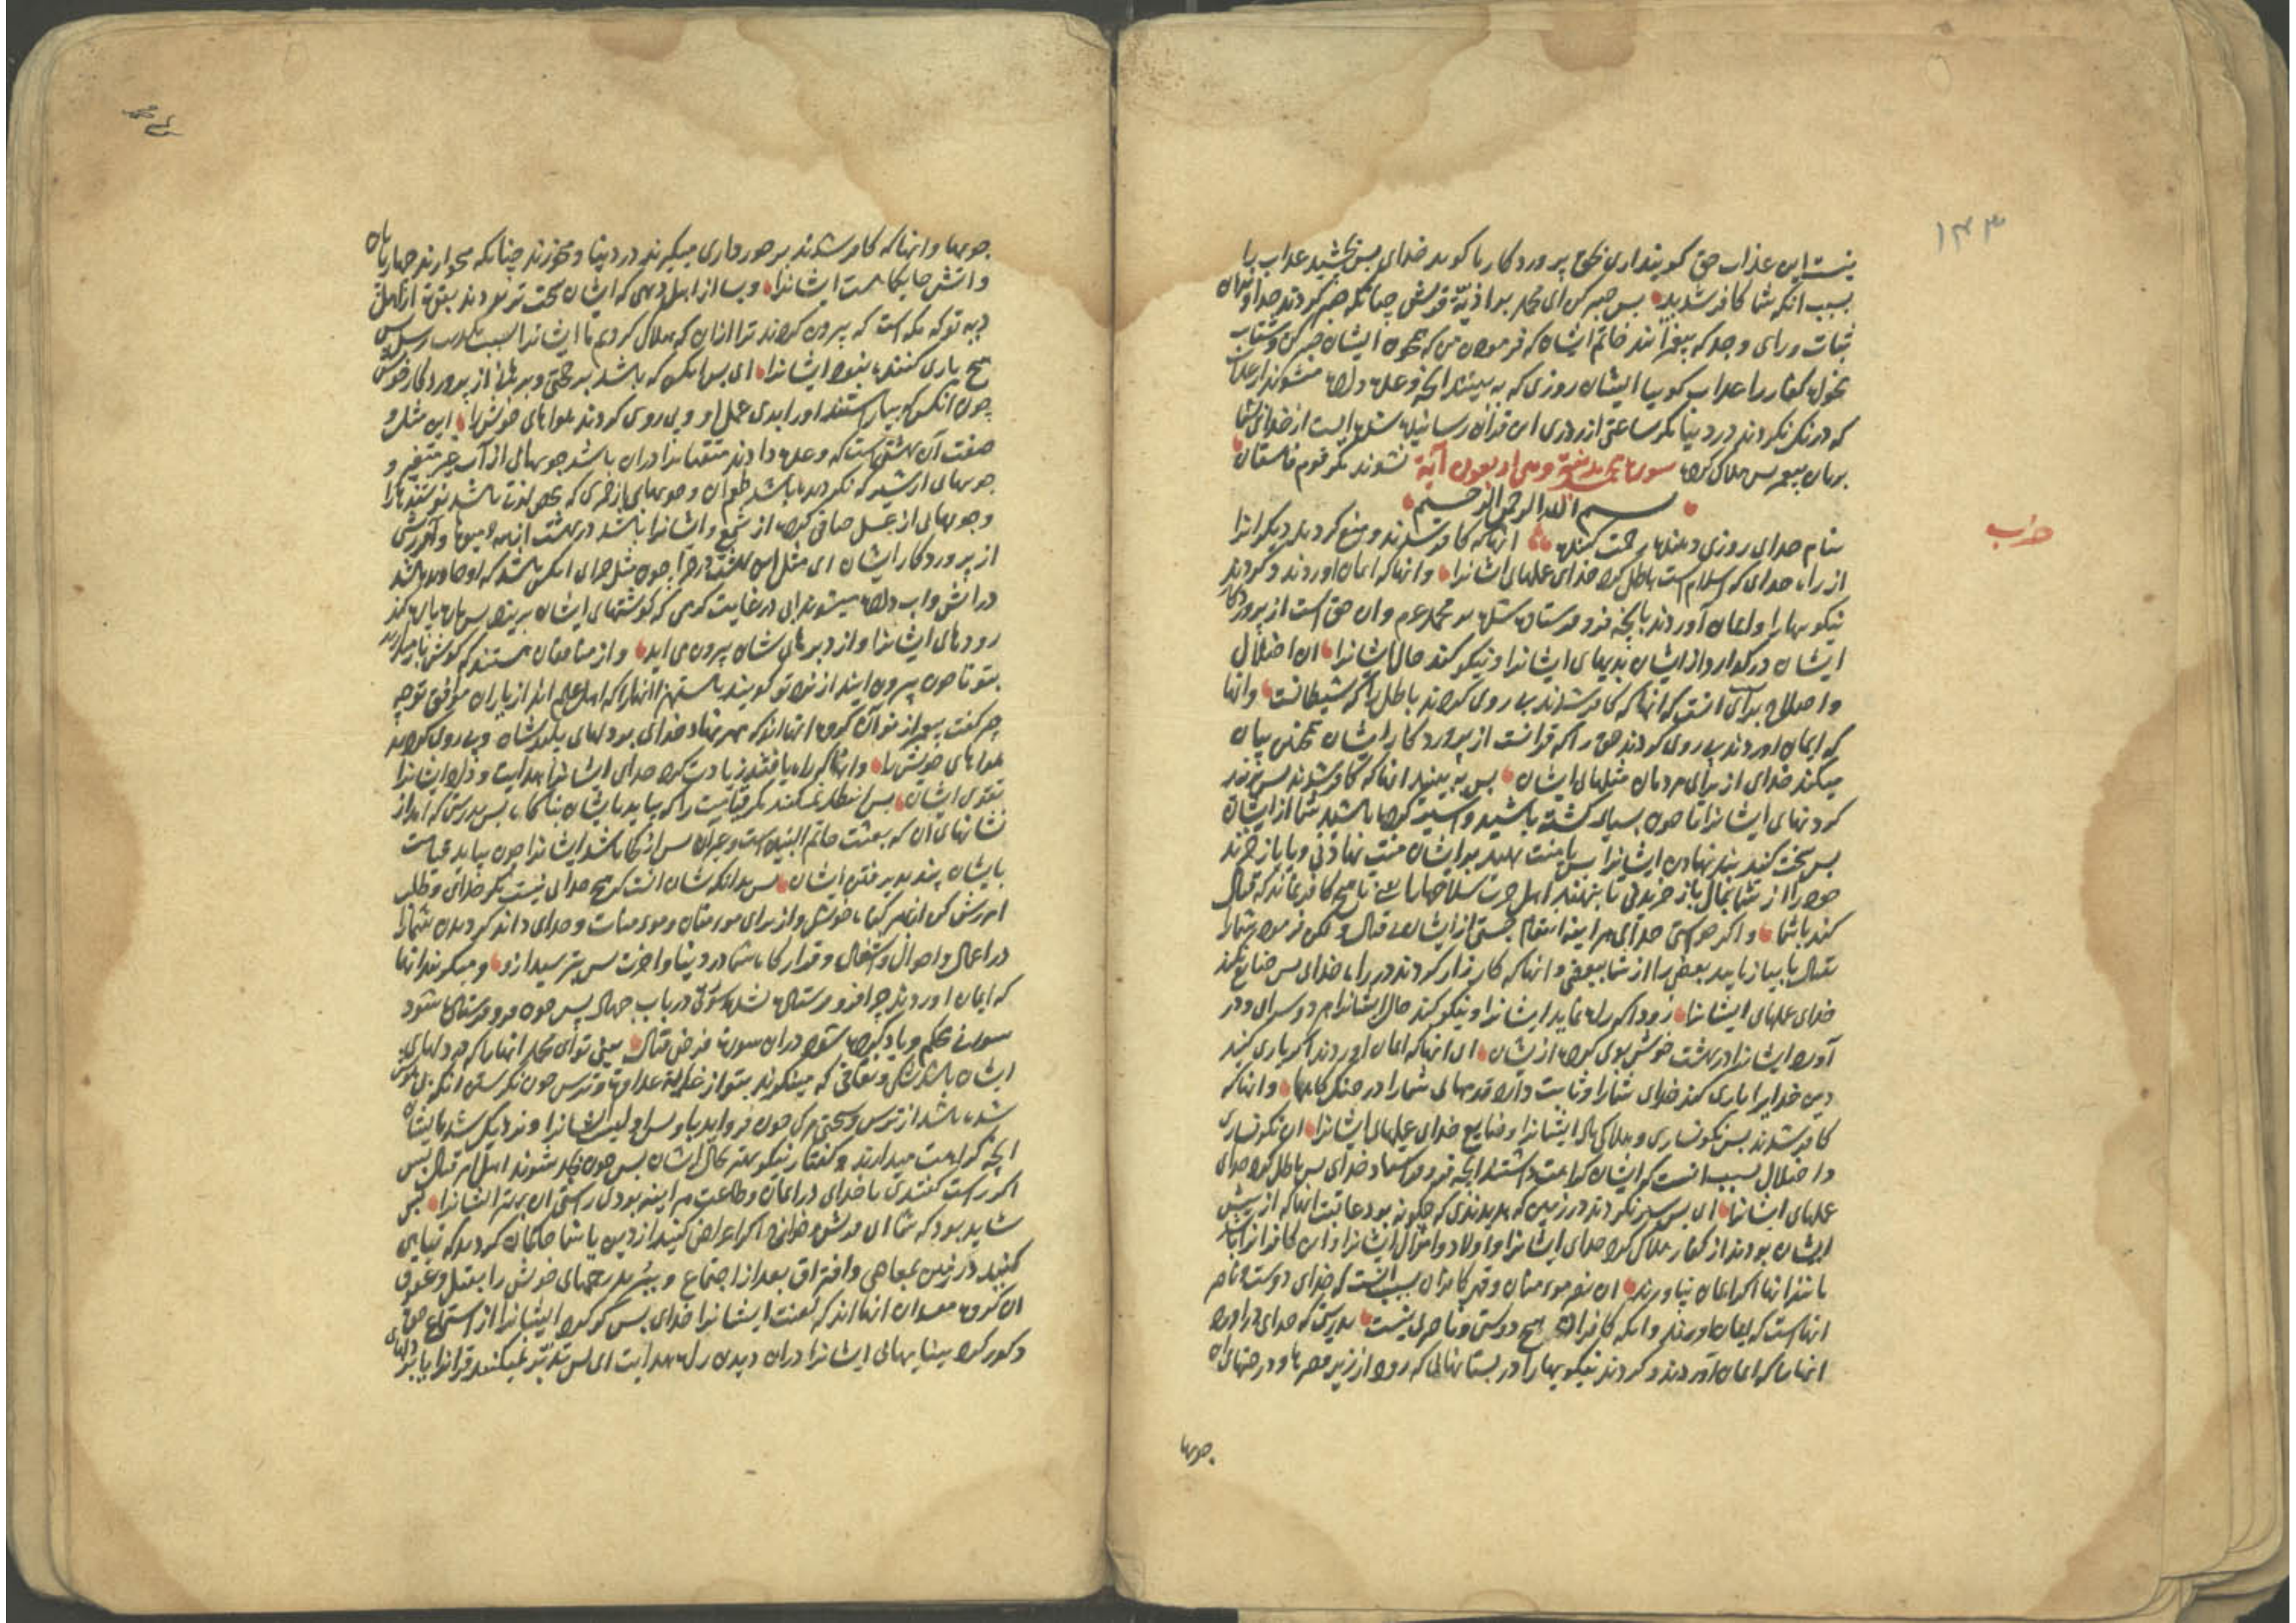 ۱۴۳
نیست این عذاب حق گویند اری بحق پروردکار ما کوید خدای پس بچشید عذاب با
بسبب انکه شما کافر شدید پس صبر کن ای محمد بر اذیة قریش چنانکه صبر کردند خداوندان
ثبات و رای و جد که پیغمبرانند خاتم ایشان که فرمودن می که همچون ایشان صبر کن و شتاب
مخواه کفار را عذاب کوییا ایشان روزی که به بینند انچه وعده داده میشوند از عذاب
که درنک نکردند در دینا مکر ساعتی از روزی این قران رسانیده شده ایست از خدای شما
بزبان پیغمبر پس هلاک کرده نشوند مکر قوم فاسقان سورة محمد مدنیة وهی اربعون آیة
بسم الله الرحمن الرحیم
بنام خدای روزی دهنده رحمت کننده انها که کافر شدند و منع کردند دیکرانرا
از راه خدای که اسلام است باطل کرد خدای عملهای ایشانرا و انها که ایمان اوردند و کردند
نیکوییها را و ایمان آوردند بانچه فرو فرستاده شده بر محمد عم و ان حق است از پروردکار
ایشان درکذارد از ایشان بدیهای ایشانرا و نیکو کند حال ایشانرا ان اضلال
و اصلاح برای انست که انها که کافر شدند پی روی کردند باطل را که شیطانست و انها
که ایمان اوردند پی روی کردند حق را که قرانست از پروردکار ایشان همچنین بیان
میکند خدای از برای مردمان مثلهای ایشان پس چو به بینید انها که کافر شدند پس بزنید
کردنهای ایشانرا تا چون بسیار کشته باشید و اسیر کرده باشید شما از ایشان
پس سخت کنید بند نهادن ایشانرا پس یا منت نهید بر ایشان منت نهادنی و یا باز خرند
خود را از شما بمال باز خریدنی تا بنهند اهل حرب سلاحها را تا هیچ کافر نماند که قتال
کند با شما و اکر خواستی خدای هراینه انتقام جستی از ایشان بی قتال و لکن فرمود شما را
بقتال تا بیازماید بعضی را از شما ببعضی و انها که کارزار کردند در راه خدای پس ضایع نکند
خدای عملهای ایشانرا زود که راه نماید ایشانرا و نیکو کند حال ایشانرا هم دو سرای و در
آورد ایشانرا در بهشت خوش بوی کرده از ایشان ای انها که ایمان اوردند اکر یاری کنید
دین خدایرا یاری کند خدای شما را و ثابت دارد قدمهای شما را در جنک کافران و انها که
کافر شدند پس نکونساری و هلاکی باد ایشانرا و ضایع خدای عملهای ایشانرا ان نکونساری
و اضلال بسبب انست که ایشان کراهت داشتند انچه فرو فرستاد خدای پس باطل کرد خدای
عملهای ایشانرا ای پس سیر نکردند در زمین که بدیدندی که چکونه بود عاقبت انها که از پیش
ایشان بودند از کفار هلاک کرد خدای ایشانرا و اولاد و اموال ایشانرا و این کافرانرا باشد
مانند انها اکر ایمان نیاورند ان نصر مومنان و قهر کافران بسبب انست که خدای دوست و ناصر
انهاست که ایمان اورند و انکه کافرانرا هیچ دوستی و ناصر نیست بدرستی که خدای در اورد
انها را که ایمان آوردند و کردند نیکوییها را در بستانهائی که رود از زیر قصرها و درختهای ان
جویها
حزاب
جویها و انها که کافر شدند برخورداری میکیرند در دینا و میخورند چنانکه میخورند چهارپایان
و اتش جایکاهست ایشانرا و بسا از اهل دیهی که ایشان سخت تر بودند بقوت از اهل
دیه تو که مکه است که بیرون کردند ترا ازان که هلاک کردیم ما ایشانرا بسبب تکذیب رسل پس
هیچ یاری کننده نبود ایشانرا ای پس انکس که باشد بر حجتی و برهانی از پروردکار خویش
چون انکس که بیاراستند او را بدی عمل او و پی روی کردند هواهای خویش را این مثل و
صفت آن بهشتی است که وعده دادند متقیانرا دران باشد جویهائی از آب غیر متغیر و
جویهای از شیر که نکردیده باشد طعم آن و جویهای از خمری که محض لذت باشد نوشندکانرا
و جویهائی از عسل صافی کرده از شمع و ایشانرا باشد در بهشت از همه میوها و آمرزش
از پروردکار ایشان ای مثل این بهشت در جزا چون مثل جزای انکس باشد که او جاوید باشد
در اتش و اب داده میشوند ابی در غایت کرمی که کوشتهای ایشان بریزد پس پاره پاره کند
رودهای ایشانرا و از دبرهای شان بیرون می اید و از منافقان هستند که کوش باز میدارند
بتو تا چون بیرون ایند از نزد تو کویند باستهزا انها را که اهل علم اند از یاران موافق تو چه
چیز کفت پیغمبر از نو آن کروه انها اند که مهر نهاد خدای بر دلهای پلید شان و پی روی کردند
هواهای خویش را و انها که راه یافتند زیادت کرد خدای ایشانرا هدایت و داد ایشانرا
تقوی ایشان پس انتظار نمیکنند مکر قیامت را که بیاید بایشان ناکاه پس بدرستی که امد از
نشانهای ان که بعثت خاتم النبیین است و غیر ان پس از کجا باشد ایشانرا چون بیاید قیامت
بایشان پند پذیرفتن ایشان پس بدانکه شان انست که هیچ خدای نیست مکر خدای و طلب
امرزش کن از بهر کناه خویش و از برای مومنان و مومنات و خدای داند کردیدن شما را
در اعمال و احوال و اشغال و قرارکاه شما در دینا و اخرت پس بترسید ازو و میکویند انها
که ایمان اوردند چرا فرو فرستاده نشد سورتی در باب جهاد پس چون فرو فرستاده شود
سورتی محکم و یاد کرده شود دران سورت فرض قتال بینی تو ای محمد انها را که در دلهای
ایشان باشد شکی و نفاقی که مینکرند بتو از غایة عداوة و ترس چون نکرستن انکس بیهوش
شده باشد از ترس و سختی مرک چون فرو اید باو پس اولیست ایشانرا و نزدیک شد بایشان
انچه کراهت میدارند و کفتار نیکو بهتر بحال ایشان پس چون مجد شوند اهل امر قتال پس
اکر راست کفتندی با خدای در ایمان و طاعت هراینه بودی راستی ان بهتر ایشانرا پس
شاید بود که شما ای قریش اکر اعراض کنید از دین یا شما حاکمان کردید که تباهی
کنید در زمین بمعاصی و افتراق بعد از اجتماع و ببرید رحمهای خویش را بقتل و عقوق
ان کروه مفسدان انها اند که لعنت ایشانرا خدای پس کر کرد ایشانرا از استماع حق
و کور کرد بینایهائی ایشانرا دران دیدن راه هدایت ای پس تدبر نمیکنند قرانرا یا بر دلهای